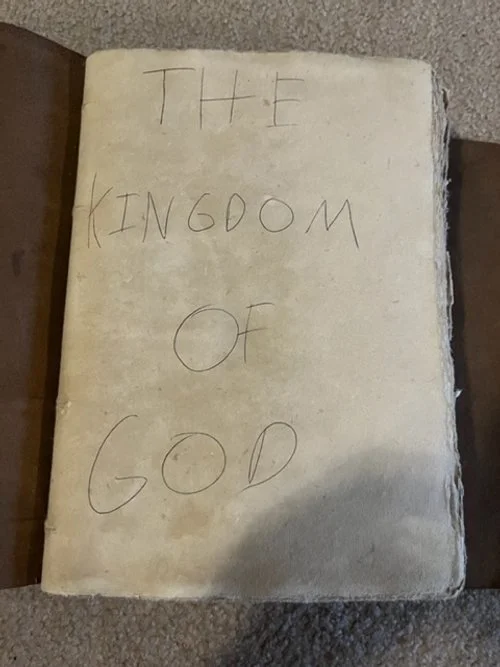 THE
KINGDOM
OF
GOD